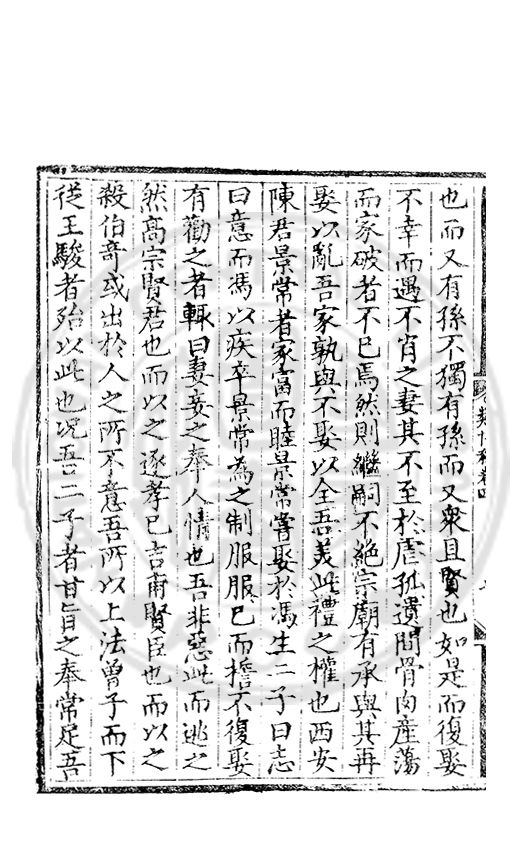 也而又有孫不獨有孫而又衆且賢也如是而復娶
不幸而遇不肖之妻其不至於虐孤遺間骨肉産蕩
而家破者不已焉然則繼嗣不絶宗廟有承與其再
娶以亂吾家孰與不娶以全吾義此禮之權也西安
陳君景常者家富而睦景常嘗娶於馮生二子曰志
曰意而馮以疾卒景常為之制服服已而擔不復娶
有勸之者輒曰妻妾之奉人情也吾非惡此而逃之
然高宗賢君也而以之逐孝已吉甫賢臣也而以之
殺伯奇或出於人之所不意吾所以上法曾子而下
從王駿者殆以此也况吾二子者甘旨之奉常足吾